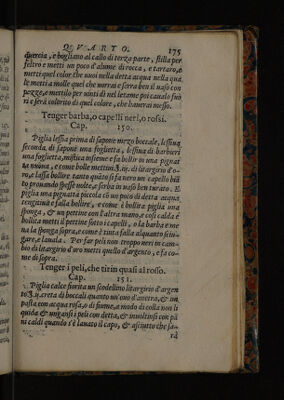 QVARTO. 175
quercia, e bogliano al callo di terza parte, stilla per
feltro e metti un poco d'alume di rocca, e tartaro, e
metti quel color che vuoi nella detta acqua nella qua
le metti a molle quel che vorrai e serra ben il vaso con
pezze, e mettilo per vinti dì nel letame poi cavalo fuo
ri e serà colorito di quel colore, che haverai messo.
Tenger barba, o capelli neri, o rossi.
Cap. 150.
Piglia lessiva prima di sapone mezo boccale, lessiva
seconda di sapone una foglietta, lessiva di barbieri
una foglietta, mistica insieme e fa bollir in una pignat
ta nuova, e come bolle mettivi 3. iij. di litargirio d'o-
ro, e lassa bollire tanto quāto si fa nero un capello bāt
to provando spesse volte, e serba in vaso ben turato. E
piglia una pignatta piccola cō un poco di detta acqua
tengitiva e falla bollire, e come è bollita piglia una
sponga, & un pettine con l'altra mano, e così calda e
bollita metti il pettine sotto i capelli, o la barba e me
na la sponga sopra, e come è tinta falla alquanto asciu-
gar, e lavala. Per far peli non troppo neri in cam-
bio di litargirio d'oro metti quello d'argento, e fa co-
me di sopra.
Tenger i peli, che tirin quasi al rosso.
Cap. 151.
Piglia calce fiorita un scodellino litargirio d'argen
to 3. ij. creta di boccali quanto un' ovo d'anetra, & im
pasta con acqua rosa, o di fiume, a modo di colla non li
quida & ungansi i peli con detta, & involtinsi con pā
ni caldi quando s'è lavato il capo, & asciutto che sa-
rà